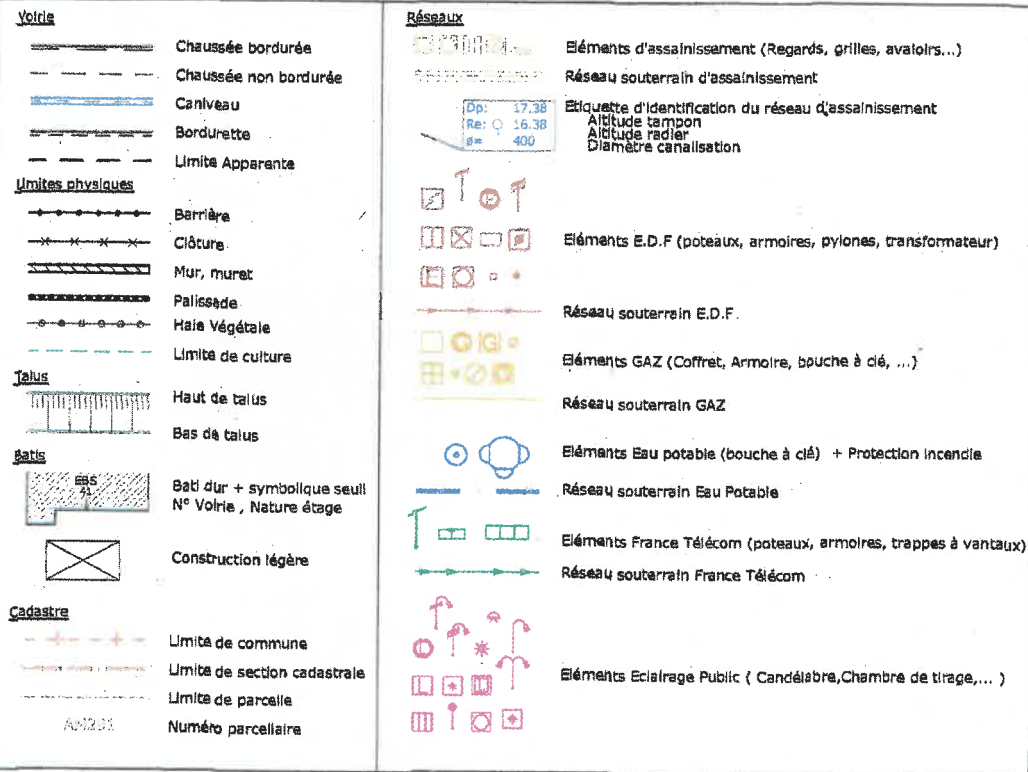 Voirie
Chaussée bordurée
Chaussée non bordurée
Caniveau
Bordurette
Limite Apparente
Limites physiques
Barrière
Clôture
Mur, muret
Palissade
Haie Végétale
Limite de culture
Talus
Haut de talus
Bas de talus
Batis
EBS
41
Bati dur + symbolique seuil
N° Voirie , Nature étage
Construction légère
Cadastre
Limite de commune
Limite de section cadastrale
Limite de parcelle
Numéro parcellaire
Réseaux
Eléments d'assainissement (Regards, grilles, avaloirs...)
Réseau souterrain d'assainissement
Dp: 17.38
Re: 16.38
ø= 400
Etiquette d'identification du réseau d'assainissement
Altitude tampon
Altitude radier
Diamètre canalisation
Eléments E.D.F (poteaux, armoires, pylones, transformateur)
Réseau souterrain E.D.F.
Eléments GAZ (Coffret, Armoire, bouche à clé, ...)
Réseau souterrain GAZ
Eléments Eau potable (bouche à clé) + Protection Incendie
Réseau souterrain Eau Potable
Eléments France Télécom (poteaux, armoires, trappes à vantaux)
Réseau souterrain France Télécom
Eléments Eclairage Public ( Candélabre,Chambre de tirage,... )